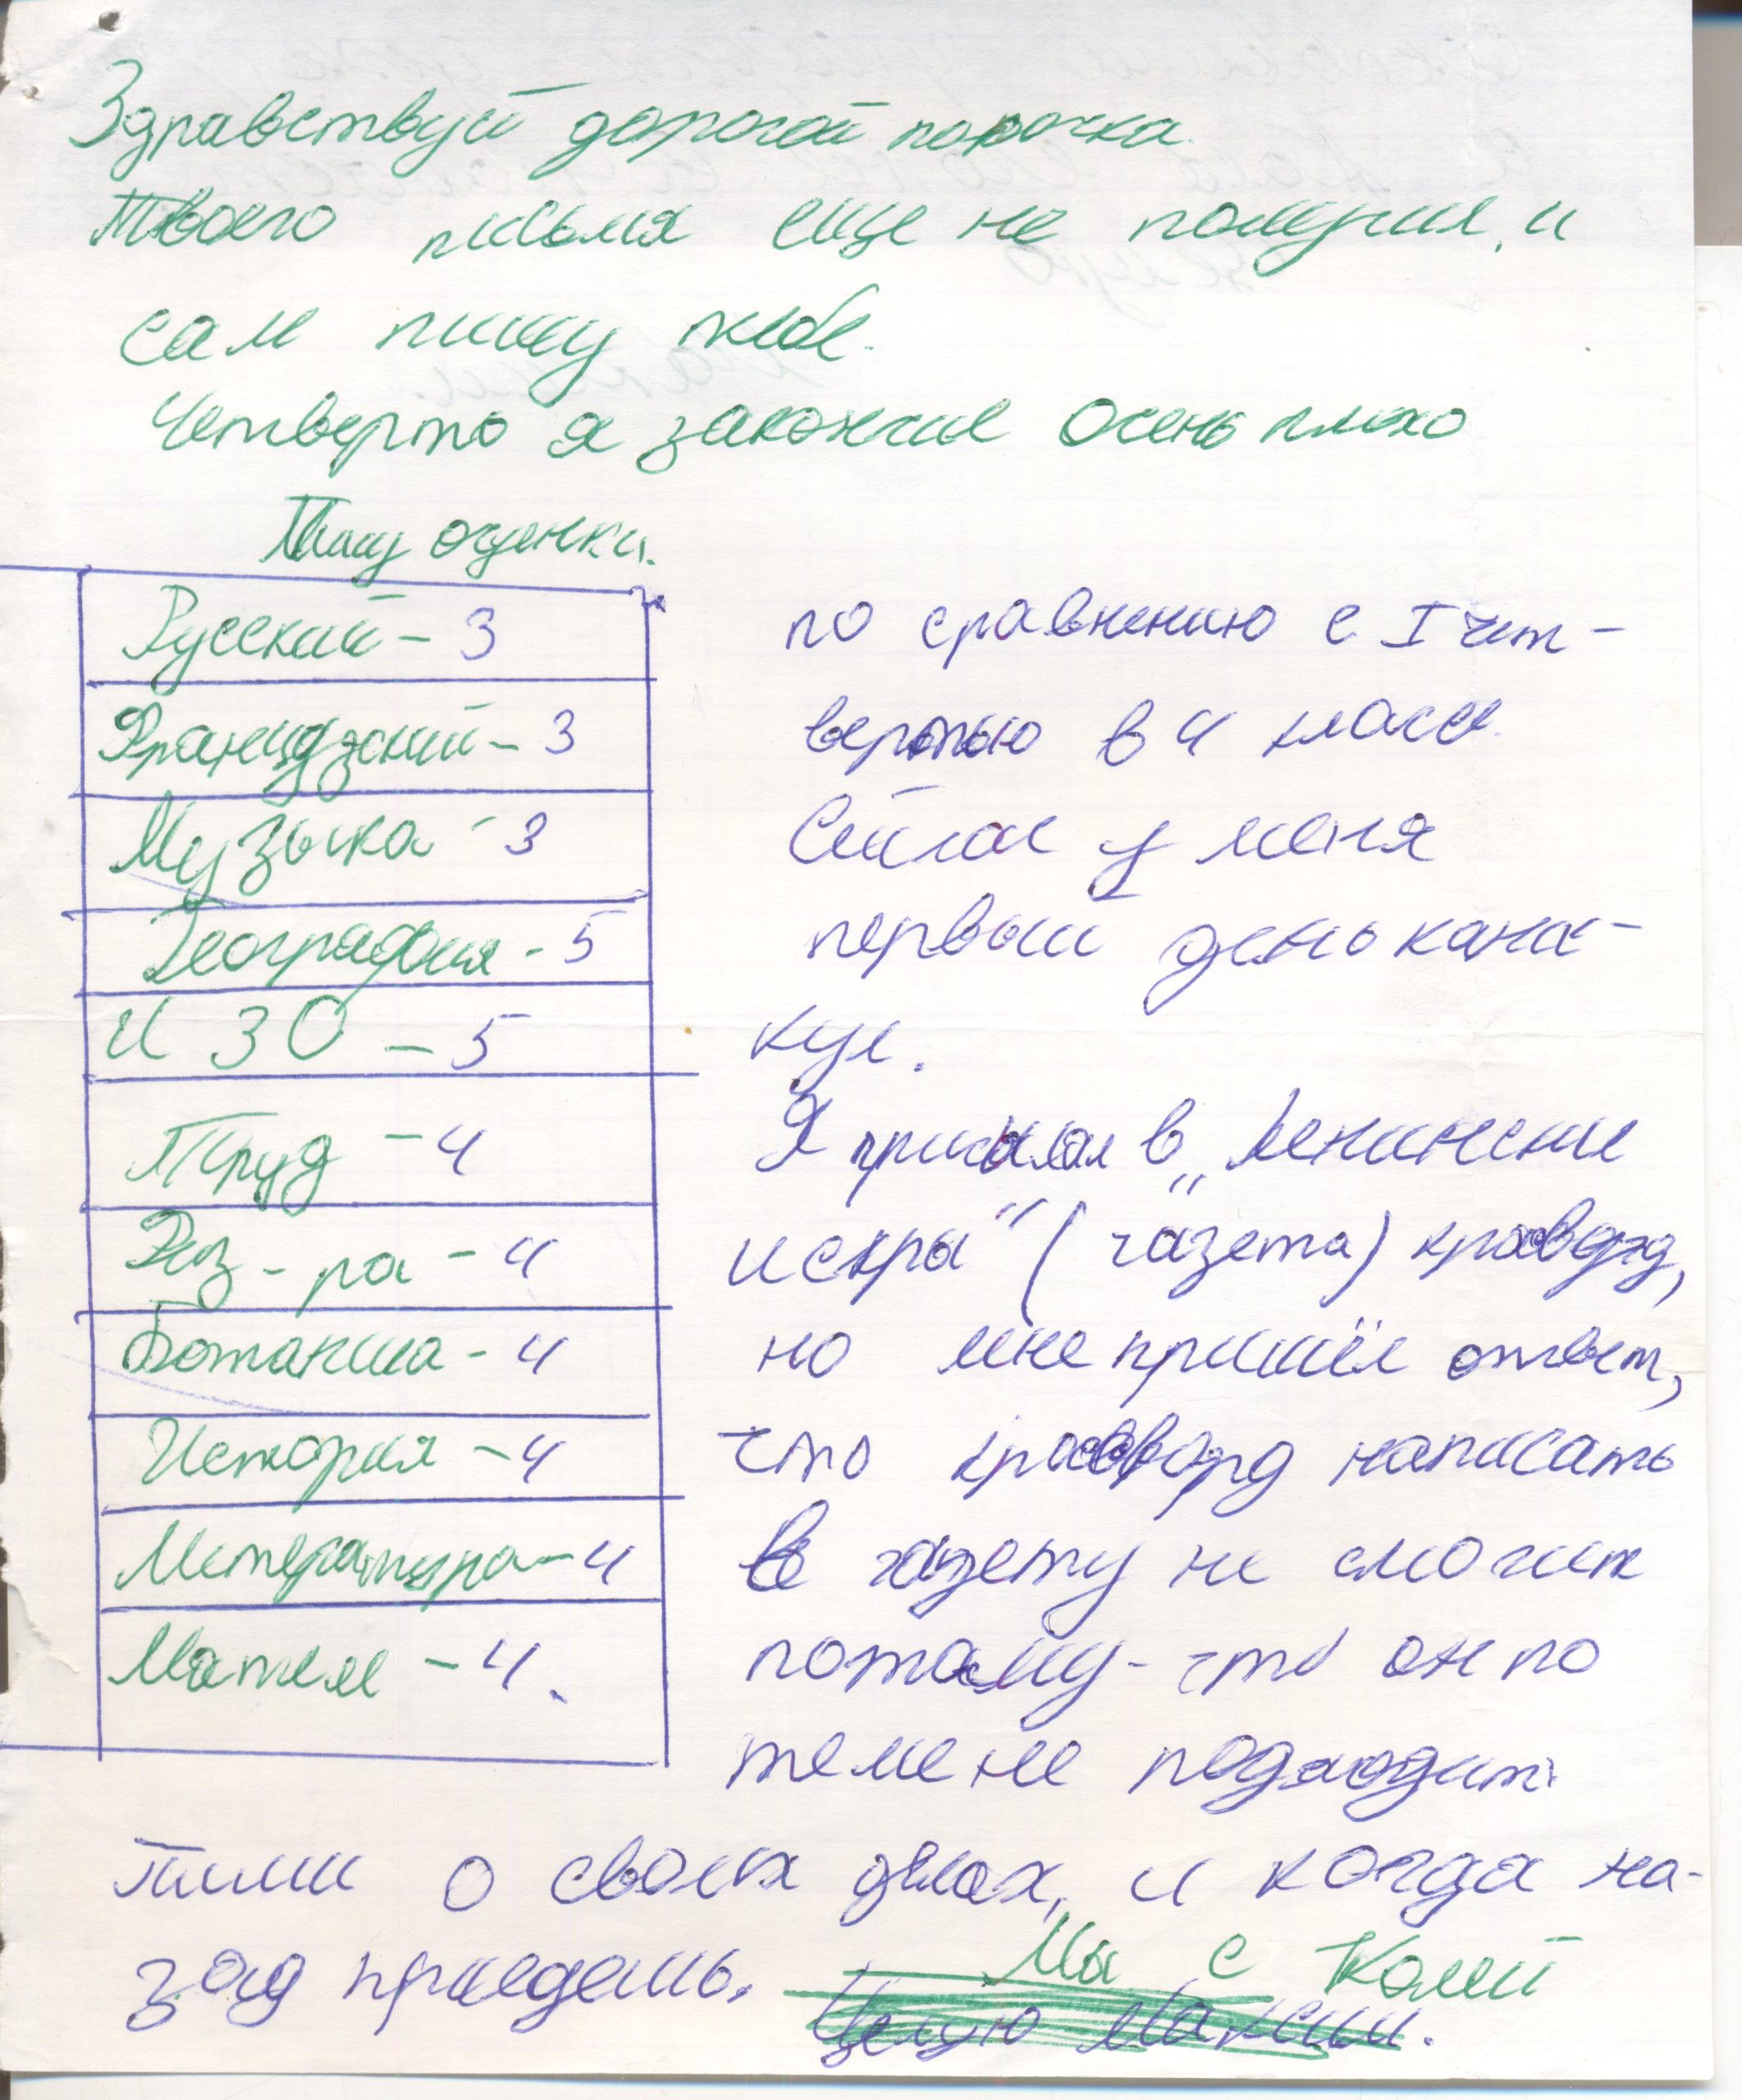 Здравствуй дорогой папочка.
Твоего письмя еще не получил, и
сам пишу тебе.
Четверто я закончил очень плохо
Пишу оценки.
Русский - 3
Французский - 3
Музыка - 3
География - 5
ИЗО - 5
Труд - 4
Физ-ра - 4
Ботаника - 4
История - 4
Литература - 4
Матем - 4.
по сравнению с I чет-
вертью в 4 класе.
Сейчас у меня
первый день кани-
кул.
Я присылал в „Ленинские
искры" (газета) кроворд,
но мне пришёл ответ,
что кроссворд написать
в газету не смогит
потому-что он по
теме не подходит.
Пиши о своих делах, и когда на-
зад приедешь.
Мы с Колей
Целую Максим.